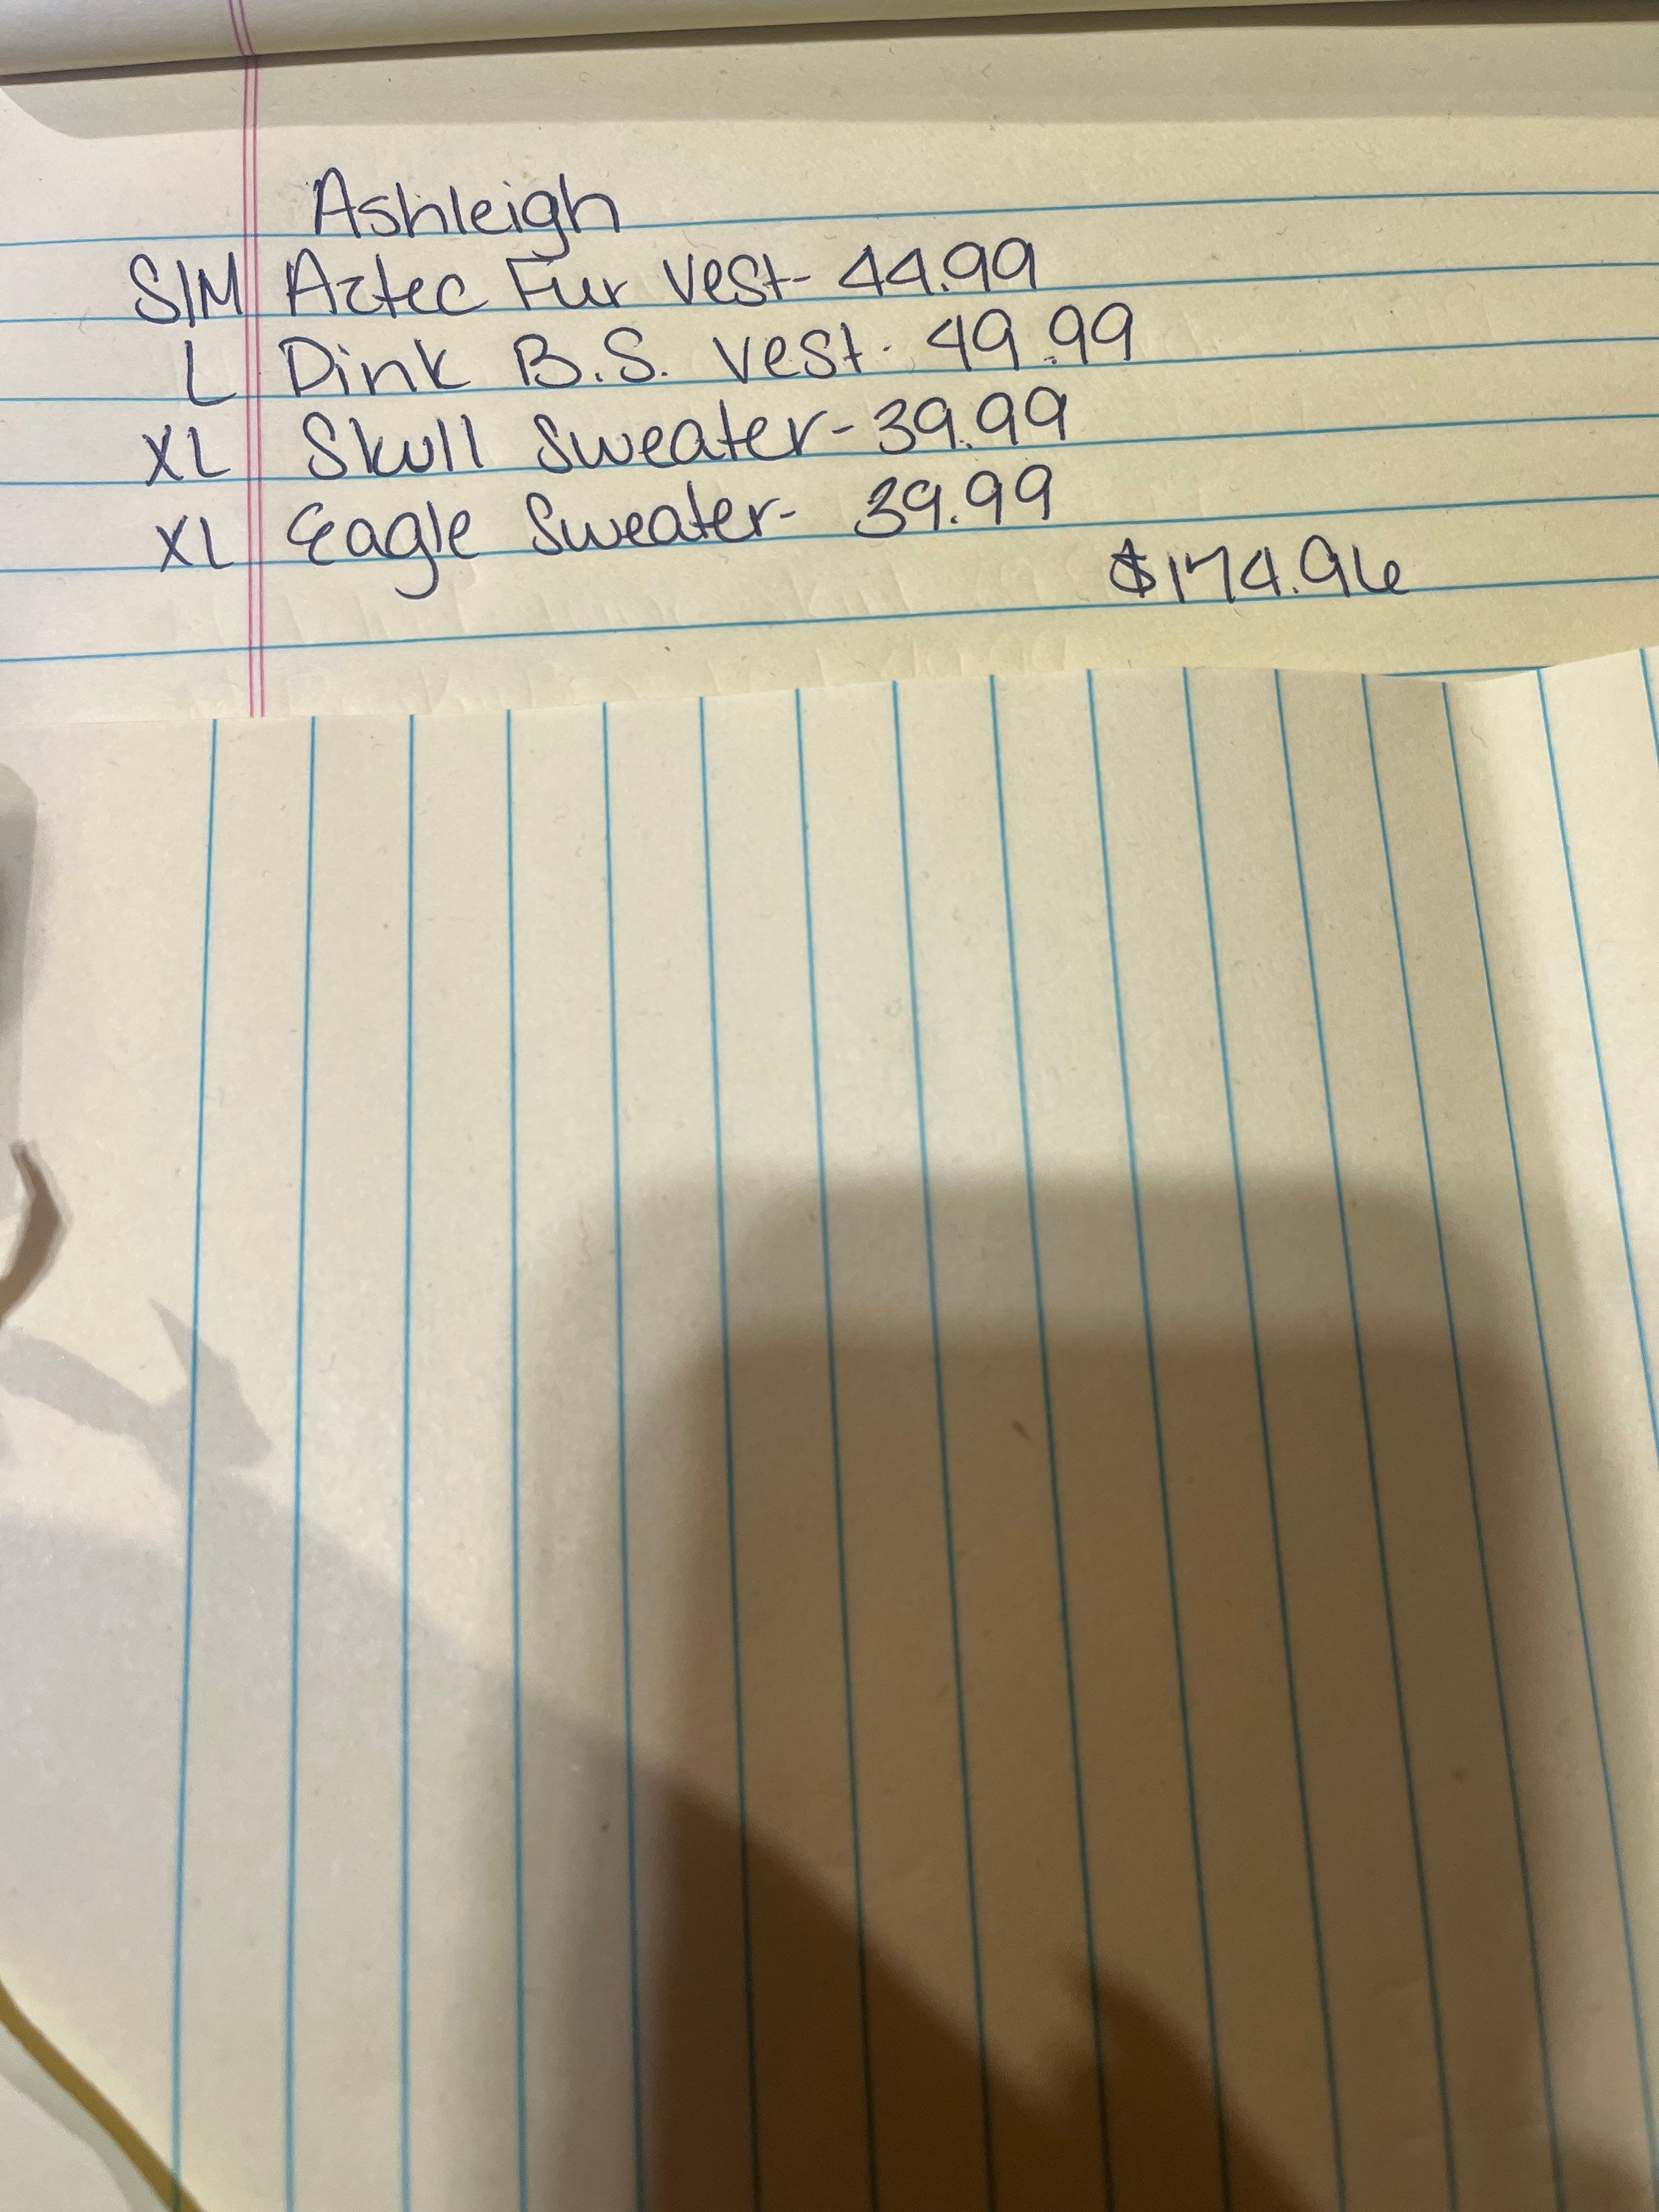 Ashleigh
S/M Aztec Fur Vest- 44.99
L Dink B.S. Vest- 49.99
XL Skull Sweater- 39.99
XL Eagle Sweater- 39.99
$174.96